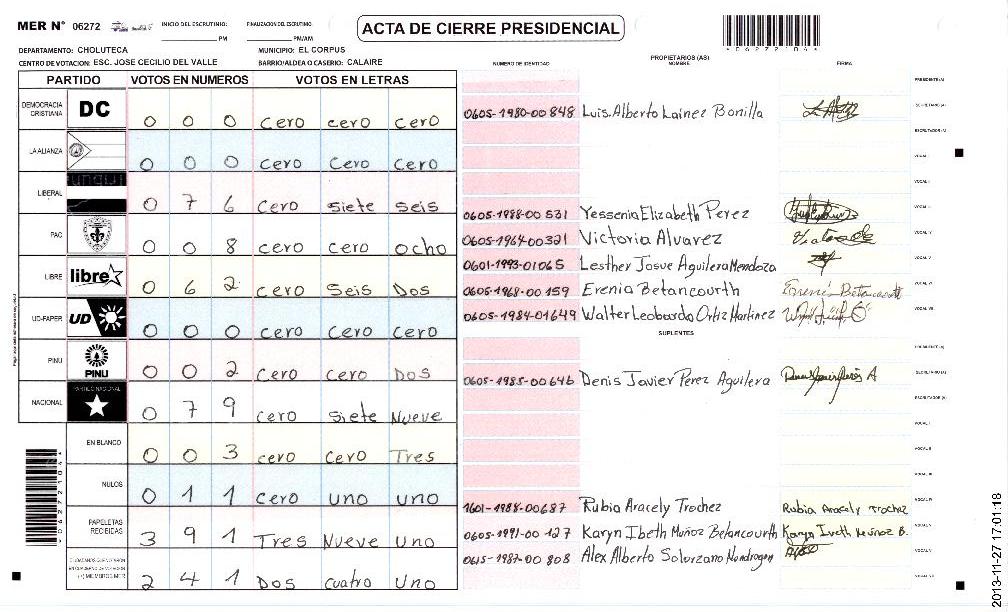 MER N° 06272 INICIO DEL ESCRUTINIO: PM FINALIZACION DEL ESCRUTINIO: PM/AM
ACTA DE CIERRE PRESIDENCIAL
*062721044*
DEPARTAMENTO: CHOLUTECA MUNICIPIO: EL CORPUS
CENTRO DE VOTACION: ESC. JOSE CECILIO DEL VALLE BARRIO/ALDEA O CASERIO: CALAIRE
PARTIDO VOTOS EN NUMEROS VOTOS EN LETRAS
DEMOCRACIA CRISTIANA DC 0 0 0 cero cero cero
LA ALIANZA 0 0 0 cero Cero Cero
LIBERAL 0 7 6 cero siete seis
PAC 0 0 8 cero cero ocho
LIBRE libre 0 6 2 cero Seis Dos
UD-FAPER UD 0 0 0 cero Cero Cero
PINU PINU 0 0 2 cero Cero Dos
NACIONAL PARTIDO NACIONAL 0 7 9 cero siete Nueve
EN BLANCO 0 0 3 cero Cero Tres
NULOS 0 1 1 cero uno uno
PAPELETAS RECIBIDAS 3 9 1 Tres Nueve Uno
CIUDADANOS QUE VOTARON EN CUADERNO DE VOTACION (+) MIEMBROS MER 2 4 1 Dos cuatro Uno
PROPIETARIOS (AS)
NUMERO DE IDENTIDAD NOMBRE FIRMA
PRESIDENTE(A)
0605-1980-00848 Luis Alberto Lainez Bonilla SECRETARIO (A)
ESCRUTADOR (A)
VOCAL I
VOCAL II
0605-1988-00531 Yessenia Elizabeth Perez
0605-1964-00321 Victoria Alvarez
0601-1993-01065 Lesther Josue Aguilera Mendoza VOCAL V
0605-1968-00159 Erenia Betancourth Erenia Betancourth VOCAL VI
0605-1984-01649 Walter Leobardo Ortiz Martinez VOCAL VII
SUPLENTES
PRESIDENTE (A)
0605-1985-00646 Denis Javier Perez Aguilera SECRETARIO (A)
ESCRUTADOR (A)
VOCAL I
VOCAL II
VOCAL III
1601-1984-00687 Rubia Aracely Trochez Rubia Aracely Trochez VOCAL IV
0605-1991-00127 Karyn Ibeth Muñoz Betancourth Karyn Iveth Muñoz B.
0615-1987-00808 Alex Alberto Solorzano Mondragon
VOCAL VII
*062721044*
2013-11-27 17:01:18